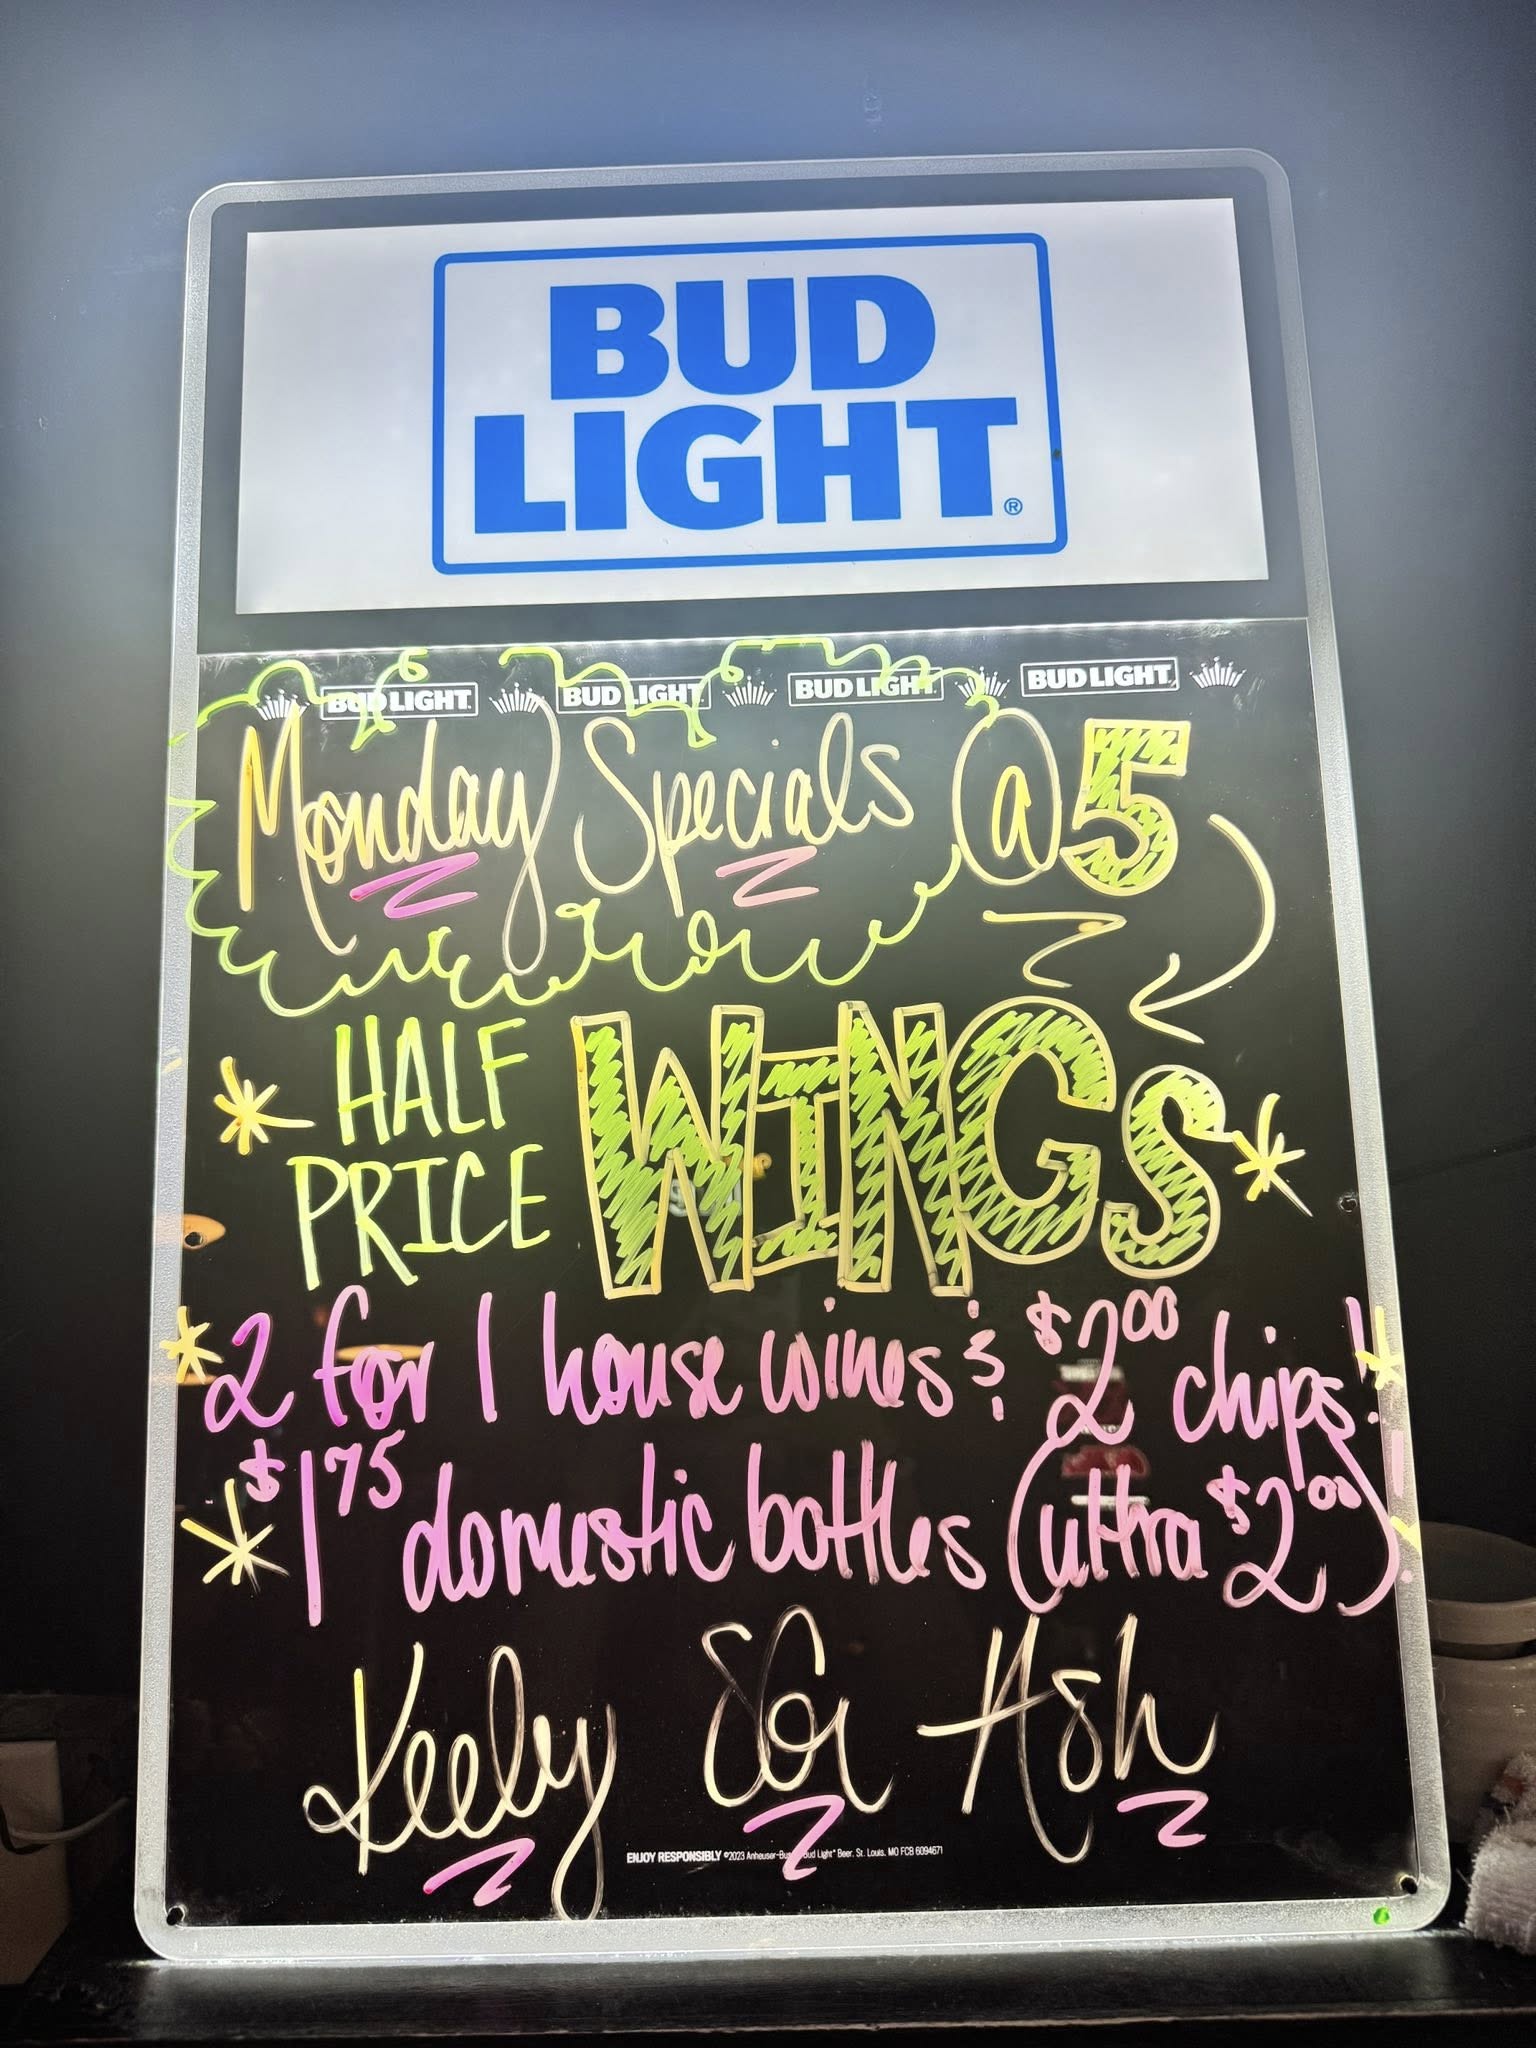 BUD
LIGHT®
BUD LIGHT BUD LIGHT BUD LIGHT BUD LIGHT
Monday Specials @ 5
HALF
PRICE WINGS
2 for 1 house wines & $2.00 chips!
$1.75 domestic bottles (ultra $2.00)!
Keely Ash
ENJOY RESPONSIBLY ©2023 Anheuser-Bus Bud Light® Beer, St. Louis, MO FCB 6094671